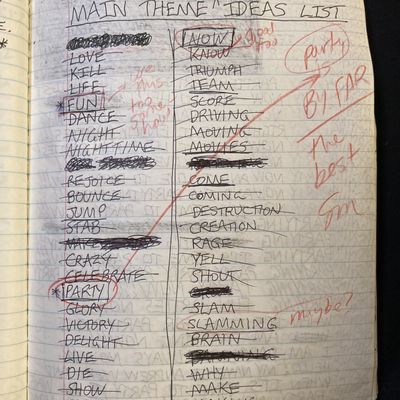 MAIN THEME IDEAS LIST
LOVE
KILL
LIFE
*FUN
DANCE
NIGHT
NIGHTTIME
REJOICE
BOUNCE
JUMP
STAB
CRAZY
CELEBRATE
*PARTY
GLORY
VICTORY
DELIGHT
LIVE
DIE
SHOW
NOW
KNOW
TRIUMPH
TEAM
SCORE
DRIVING
MOVING
MOVIES
COME
COMING
DESTRUCTION
CREATION
RAGE
YELL
SHOUT
SLAM
SLAMMING
BRAIN
WHY
MAKE
good
too
use
this
party
is
BY FAR
the
best
maybe?